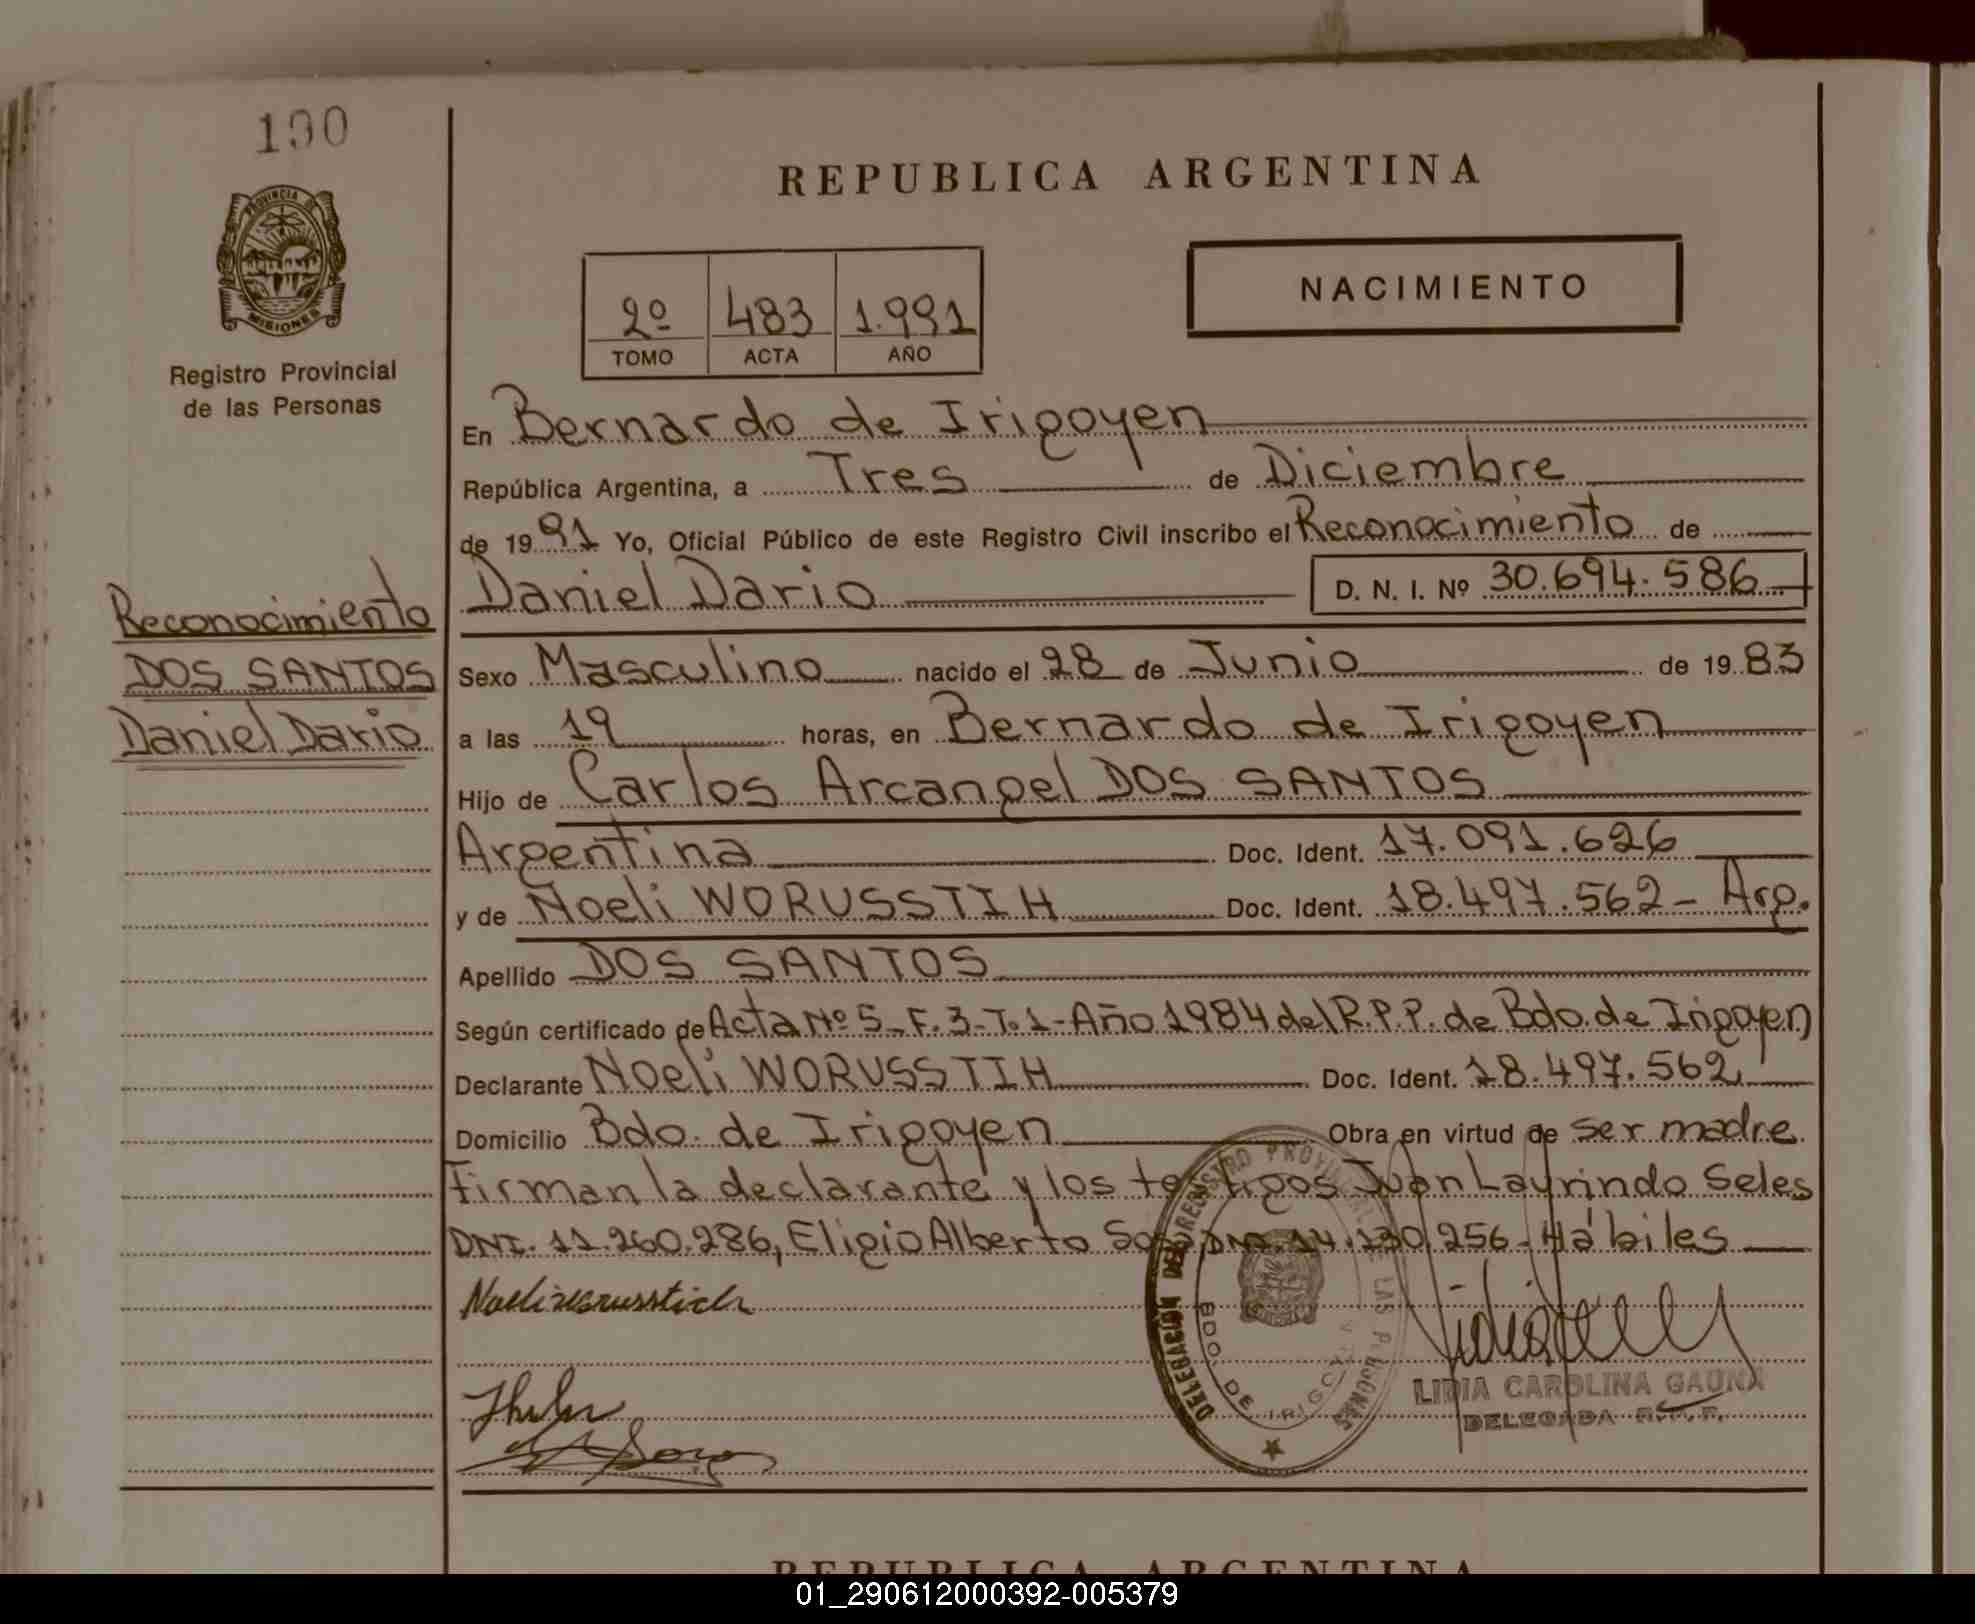 190
REPUBLICA ARGENTINA
PROVINCIA DE
MISIONES
Registro Provincial
de las Personas
2º 483 1.991
TOMO ACTA AÑO
NACIMIENTO
En Bernardo de Irigoyen
República Argentina, a Tres de Diciembre
de 1991 Yo, Oficial Público de este Registro Civil inscribo el Reconocimiento de
Daniel Dario D. N. I. Nº 30.694.586
Reconocimiento
DOS SANTOS
Daniel Dario
Sexo Masculino nacido el 28 de Junio de 1983
a las 19 horas, en Bernardo de Irigoyen
Hijo de Carlos Arcangel DOS SANTOS
Argentina Doc. Ident. 17.091.626
y de Noeli WORUSSTIH Doc. Ident. 18.497.562 - Arg.
Apellido DOS SANTOS
Según certificado de Acta Nº 5 - F. 3 - T. 1 - Año 1984 del R.P.P. de Bdo. de Irigoyen
Declarante Noeli WORUSSTIH Doc. Ident. 18.497.562
Domicilio Bdo. de Irigoyen Obra en virtud de ser madre.
Firman la declarante y los testigos Juan Laurindo Seles
DNI. 11.260.286, Eligio Alberto DNI. 14.130.256 - Hábiles
Noeli worusstich
DELEGACION DEL REGISTRO PROVINCIAL DE LAS PERSONAS
BDO. DE IRIGOYEN
LIDIA CAROLINA GAUNA
DELEGADA R.P.P.
REPUBLICA ARGENTINA
01_290612000392-005379